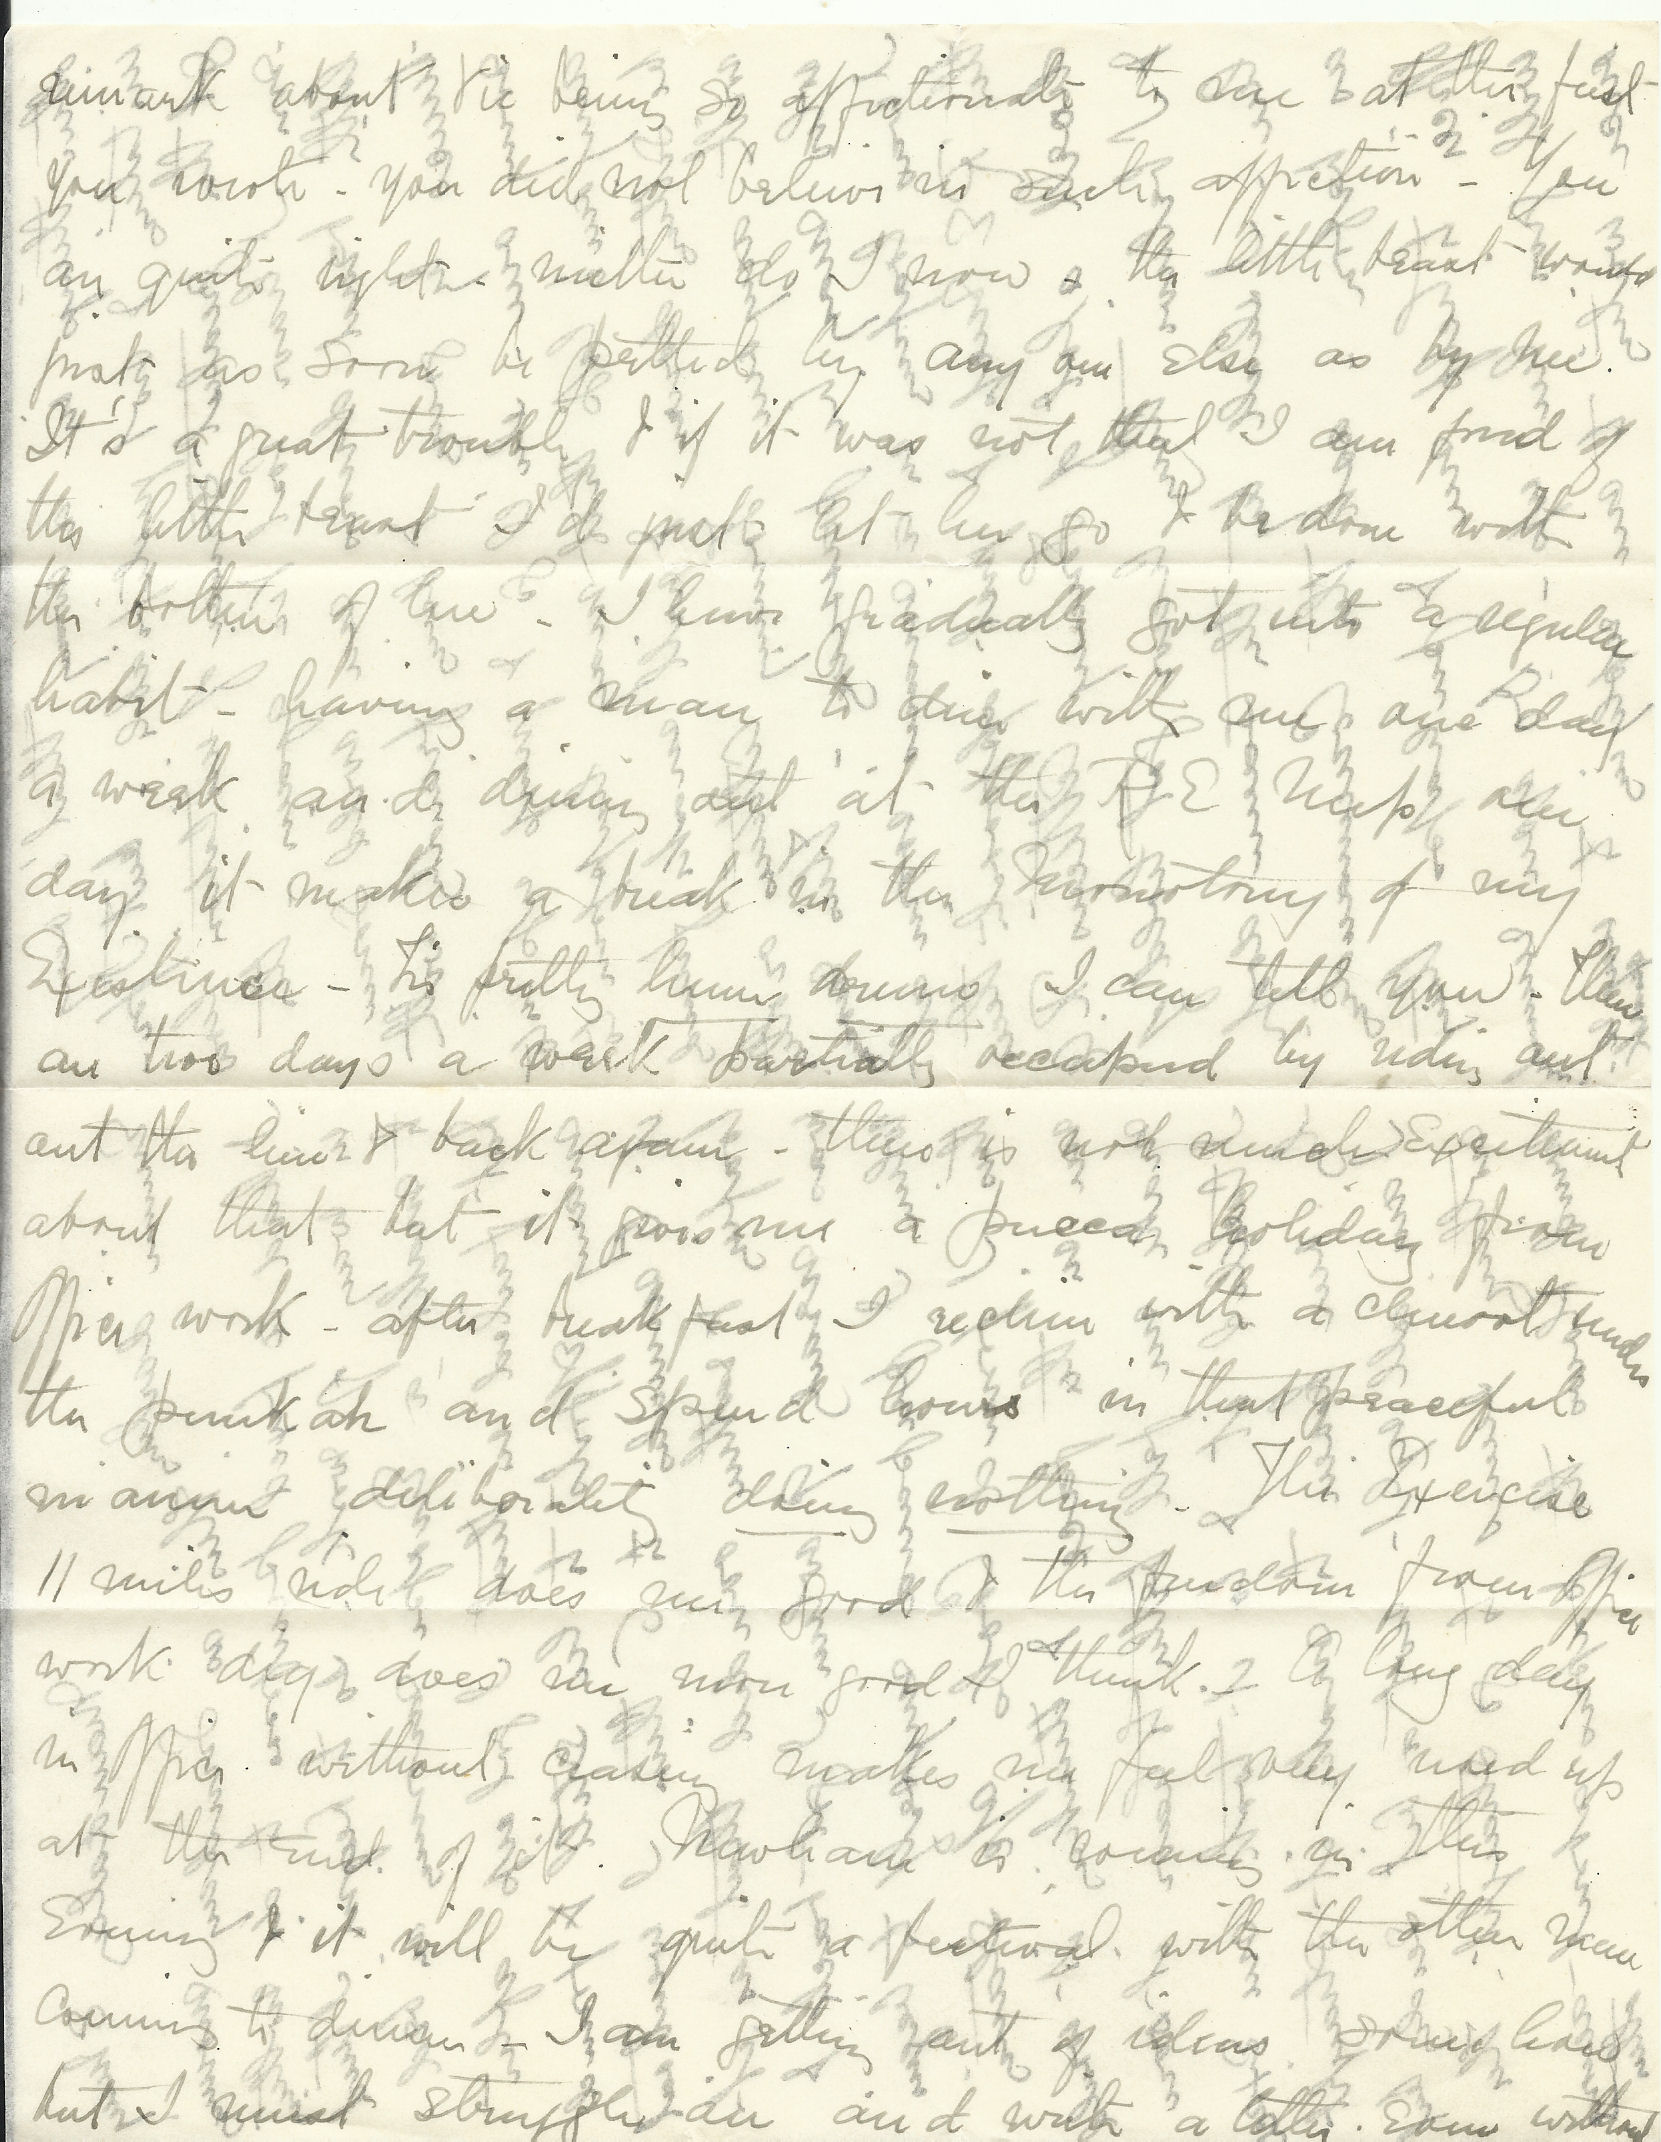 remark about Vic being so affectionate to me at the first
you wrote - you did not believe in such affection - You
are quite right - neither do I now & the little beast would
just as soon be petted by any one else as by me.
It's a great trouble & if it was not that I am fond of
the little beast I'd just let her go & be done with
the bother of her - I have gradually got into a regular
habit - having a man to dine with me one day
a week and dining out at the R E Mess one
day it makes a break in the monotony of my
Existence - Tis pretty hum drum I can tell you - There
are two days a week partially occupied by riding out
out the line & back again - there is not much Excitement
about that but it gives me a pucca holiday from
Office work - after breakfast I recline with a cheroot under
the punkah and spend hours in that peaceful
manner deliberately doing nothing - The Exercise
11 miles ride does me good & the freedom from Office
work does me more good I think. - A long day
in Office without ceasing makes me feel very used up
at the End of it. is coming in this
Evening & it will be quite a festival with the other men
Coming to dinner - I am getting out of ideas some how
but I must struggle on and write a letter. Even without